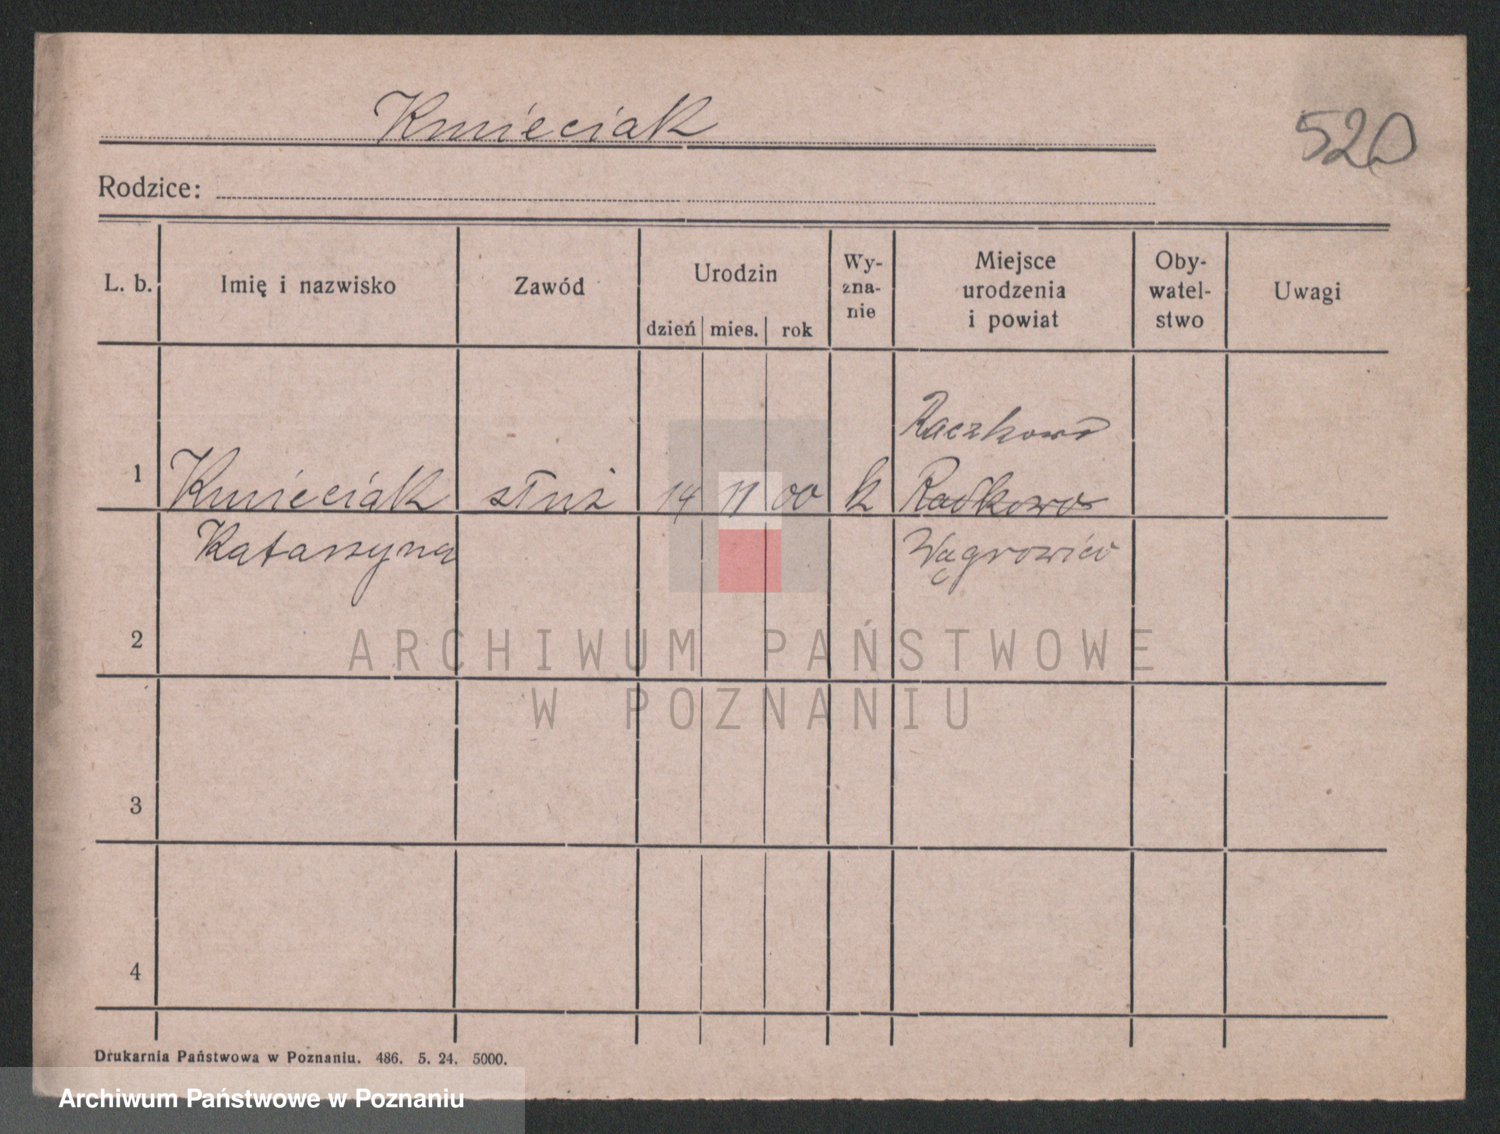 Kmieciak
520
Rodzice:
L. b.
Imię i nazwisko
Zawód
Urodzin
dzień mies. rok
Wy-
zna-
nie
Miejsce
urodzenia
i powiat
Oby-
watel-
stwo
Uwagi
Raczkowo
1 Kmieciak służ 14 11 00 k Radkowo
Katarzyna Wągrowiec
2
ARCHIWUM PAŃSTWOWE
W POZNANIU
3
4
Drukarnia Państwowa w Poznaniu. 486. 5. 24. 5000.
Archiwum Państwowe w Poznaniu